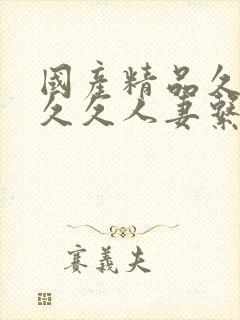 國產精品久
久久人妻繫
賽義夫